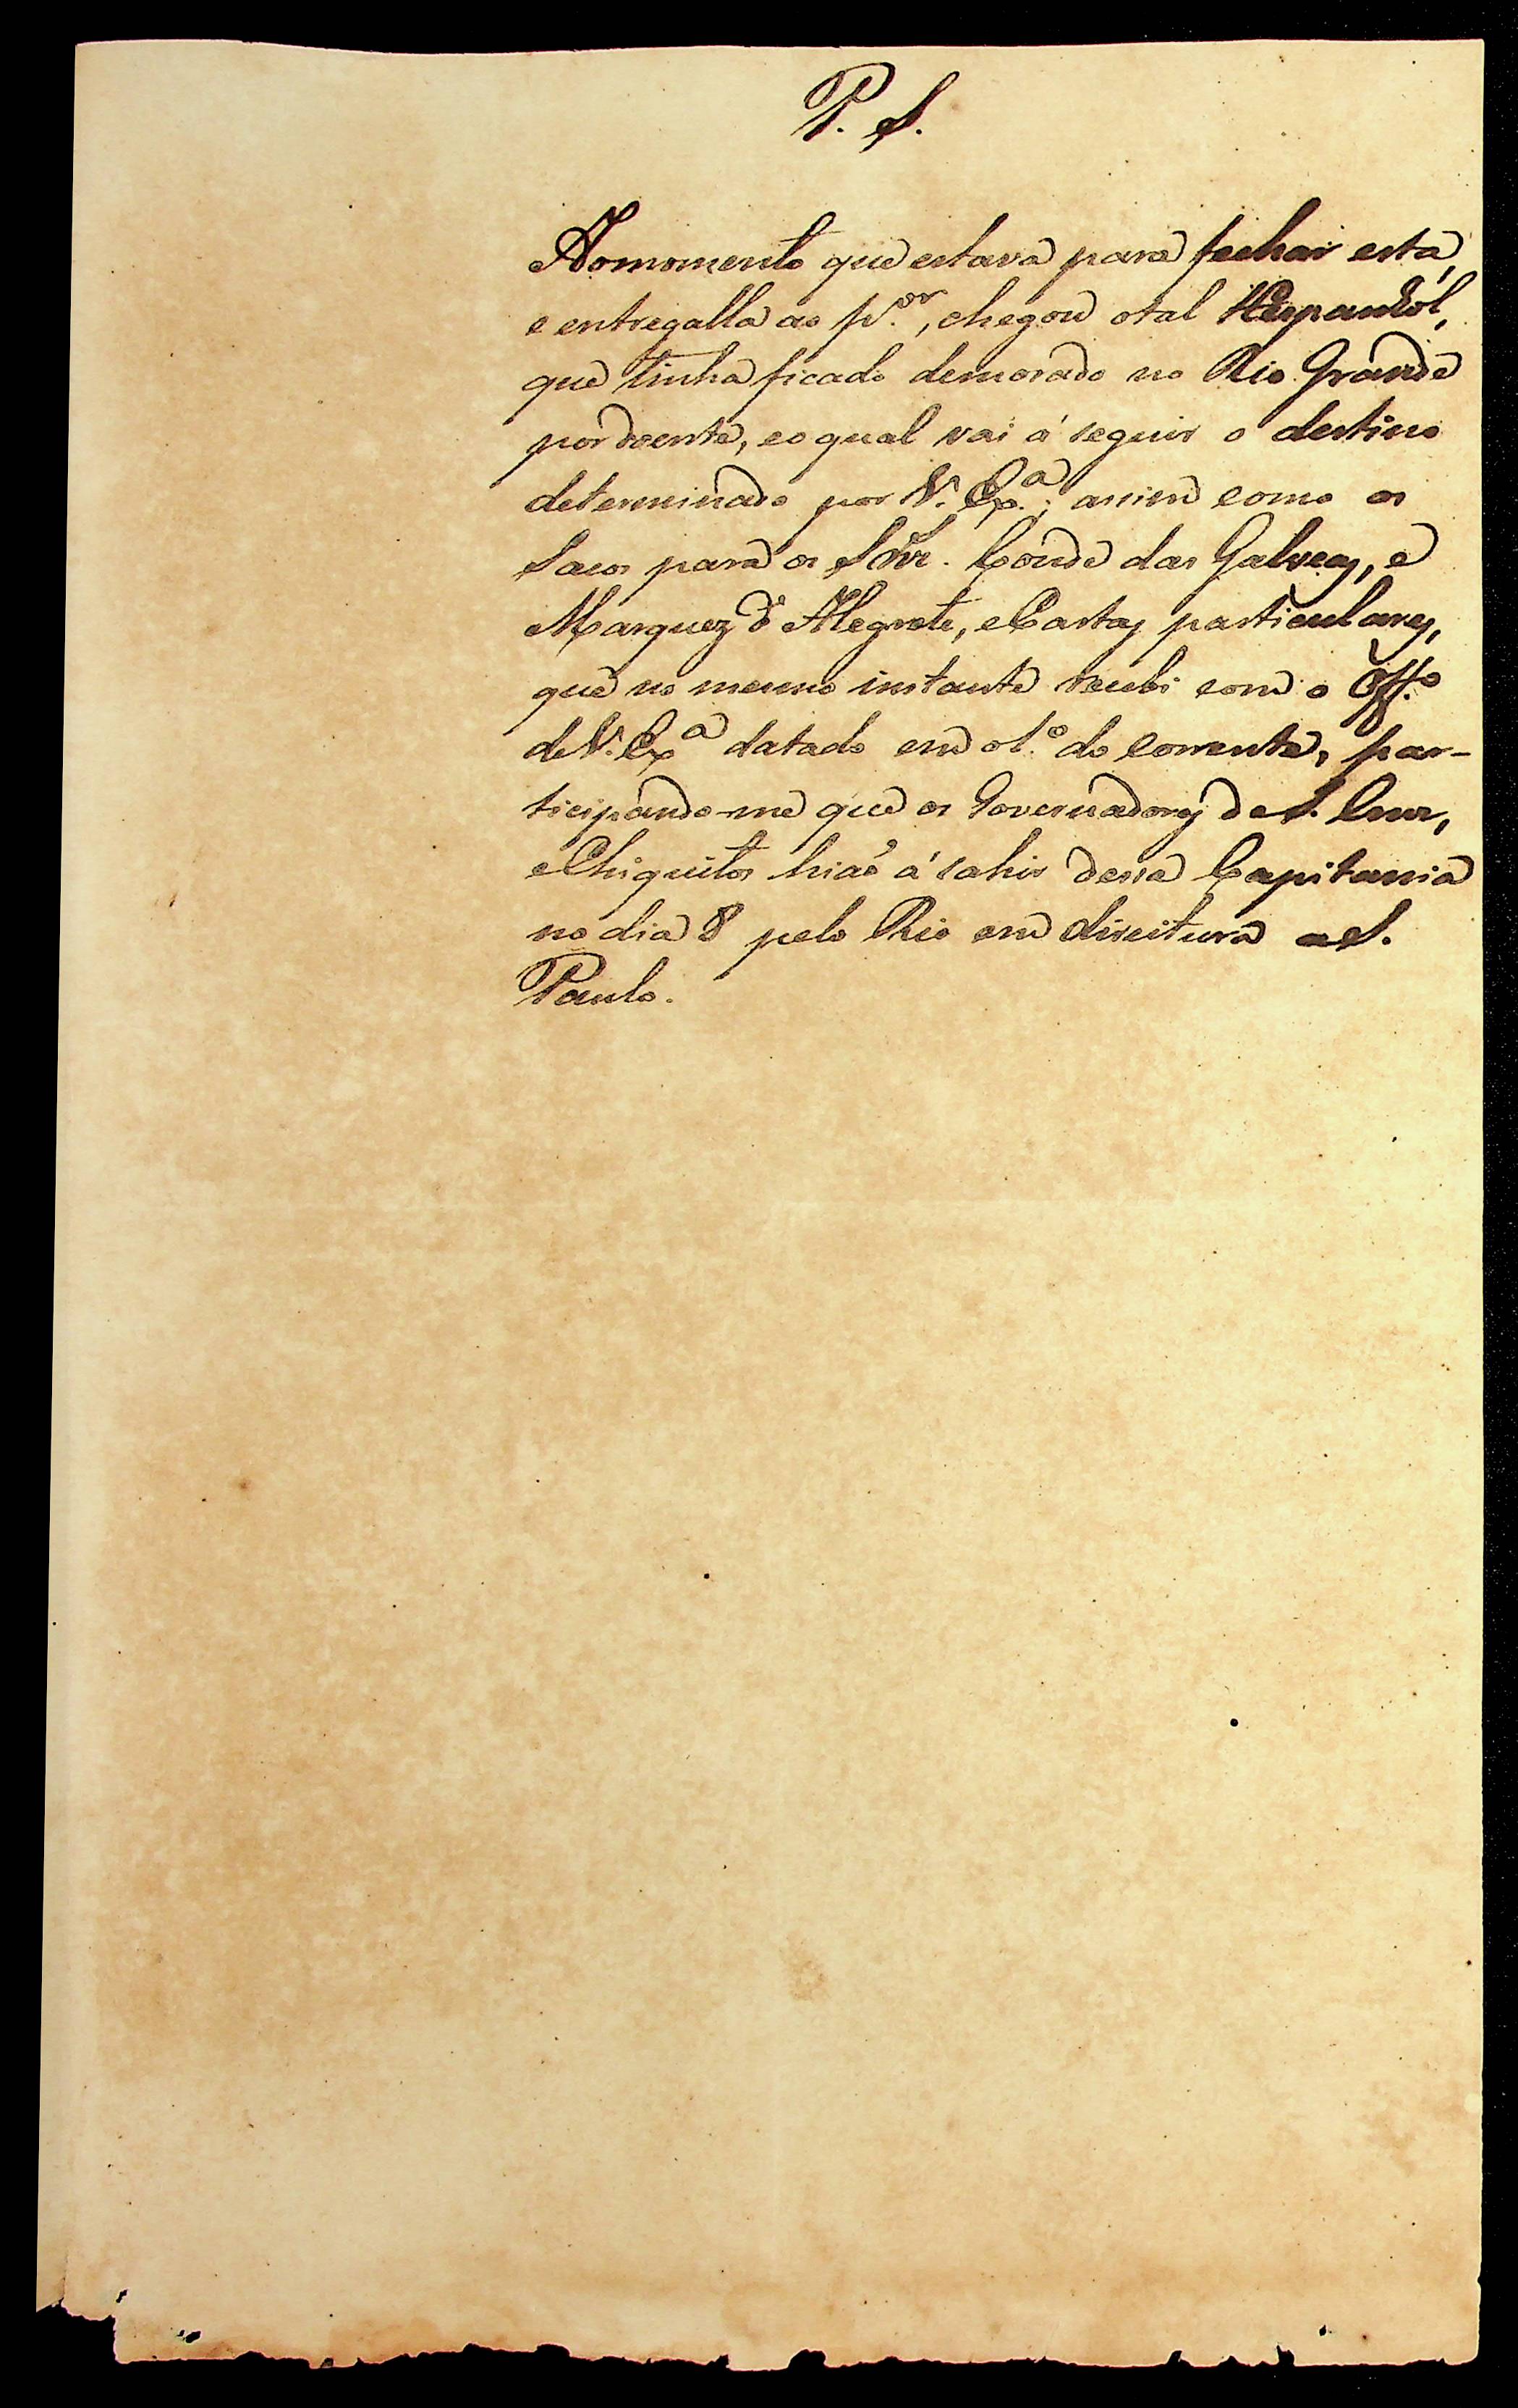 P. S.
Aomomento que estava para fechar esta,
e entregalla ao p.or, chegou otal Hespanhól,
que tinha ficado demorado no Rio Grande
pordoente, eo qual vai á seguir o destino
determinado por V. Ex.a; assim como os
Sacos para os Snr. Conde das Galveas, e
Marquez d'Alegrete, eCartas particulares,
que no mesmo instante recebi com o Off.o
deV. Ex.a datado em o1.o do corrente, par-
ticipando-me que os Governadores de S. Cruz,
eChiquitos hiaõ á sahir dessa Capitania
no dia 8 pelo Rio em direitura a S.
Paulo.